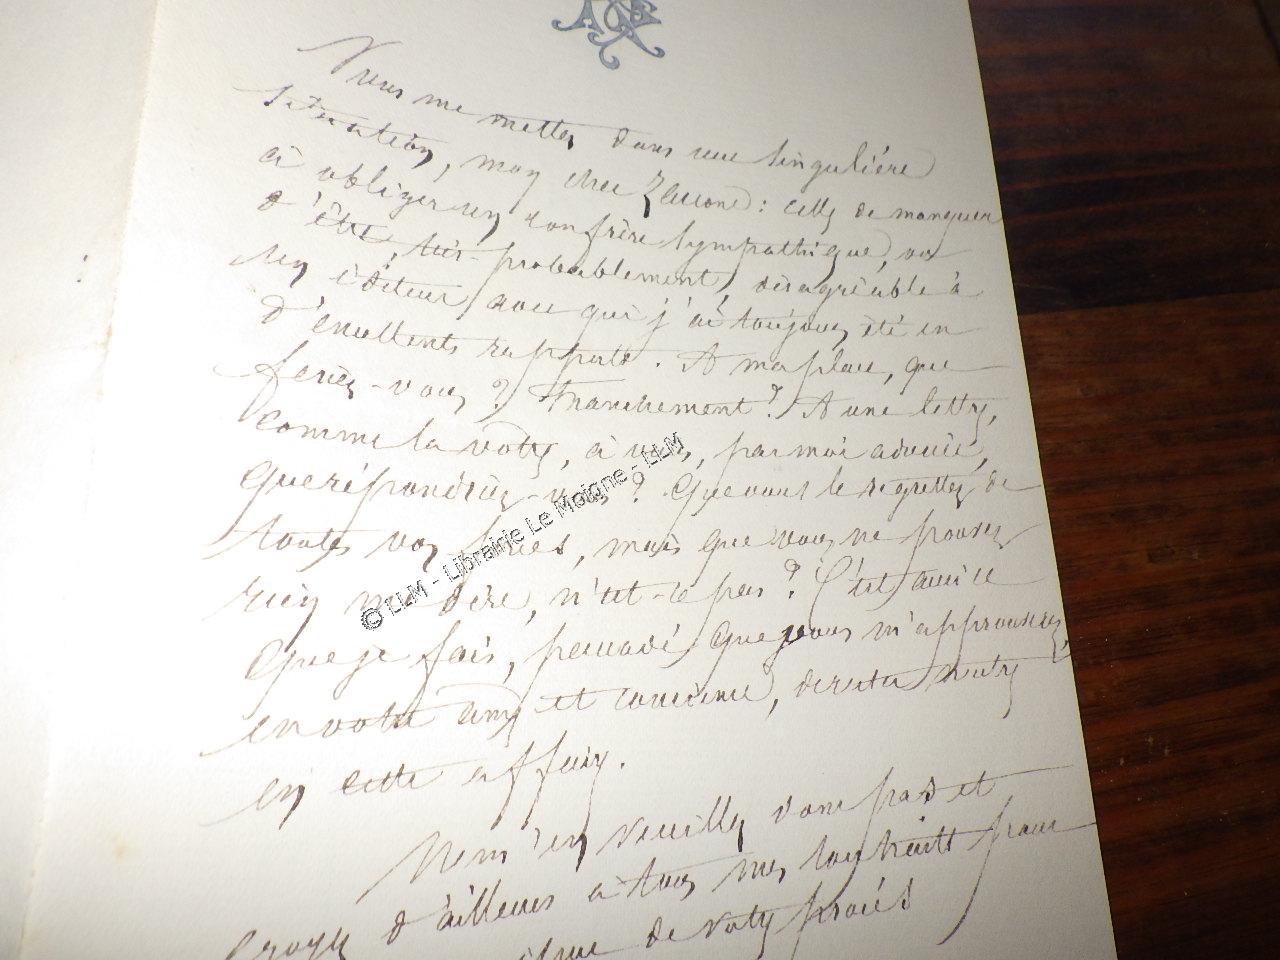 Vous me mettez dans une singulière
situation, mon cher Zaccone : celle de manquer
à obliger un confrère sympathique, ou
d'être, très-probablement, désagréable à
un éditeur avec qui j'ai toujours été en
d'excellents rapports. A ma place, que
feriez-vous ? Franchement ? A une lettre,
comme la vôtre, à vous, par moi adressée,
que répondriez-vous ? Que vous le regrettez de
toutes vos forces, mais que vous ne pouvez
rien me dire, n'est-ce pas ? C'est aussi ce
que je fais, persuadé que vous m'approuverez,
en votre âme et conscience, de rester neutre
en cette affaire.
Ne m'en veuillez donc pas et
croyez d'ailleurs à tous mes souhaits pour
de votre procès
© LLM - Librairie Le Moigne - LLM